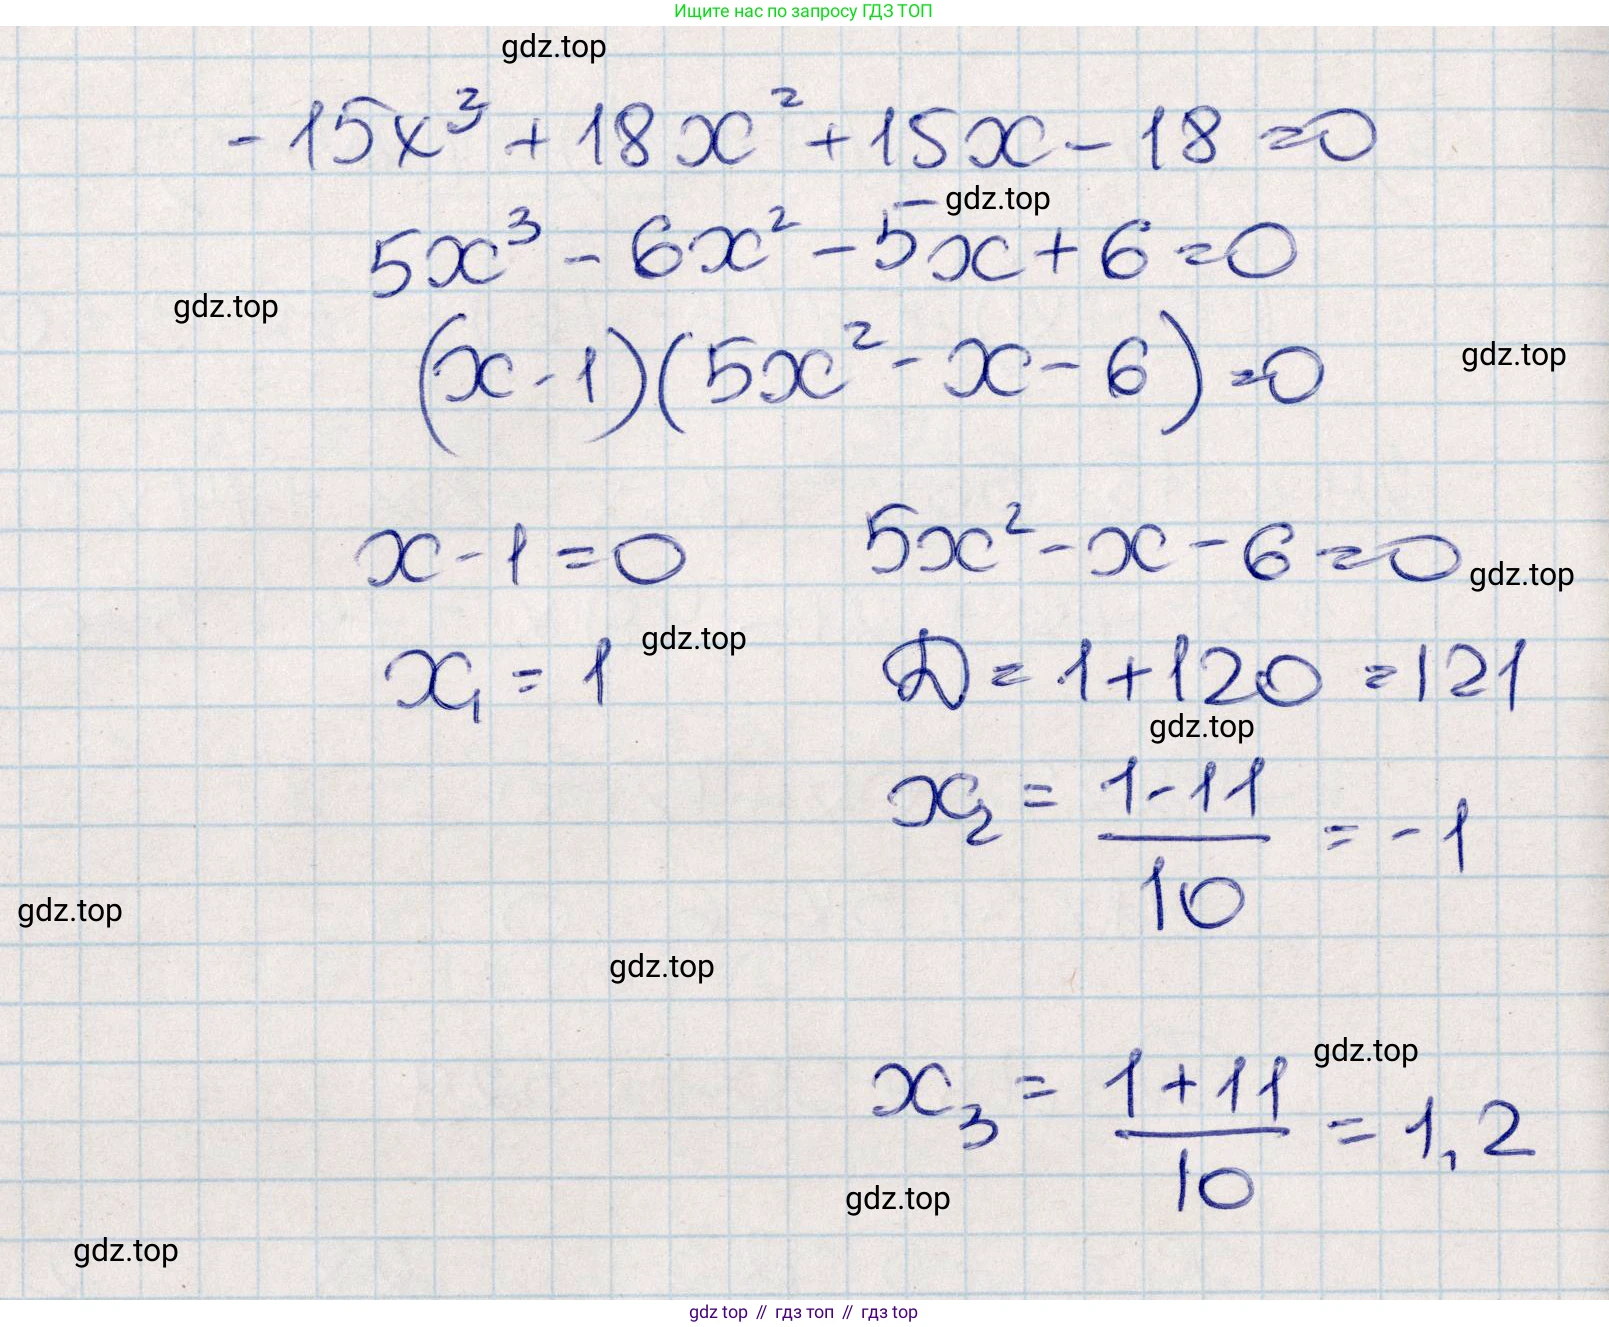 Ищите нас по запросу ГДЗ ТОП
gdz.top
-15x³ + 18x² + 15x - 18 = 0
gdz.top
5x³ - 6x² - 5x + 6 = 0
gdz.top
(x - 1)(5x² - x - 6) = 0
gdz.top
x - 1 = 0    5x² - x - 6 = 0
gdz.top
gdz.top
x₁ = 1    D = 1 + 120 = 121
gdz.top
x₂ = (1 - 11)/10 = -1
gdz.top
gdz.top
gdz.top
x₃ = (1 + 11)/10 = 1,2
gdz.top
gdz.top
gdz top // гдз топ // гдз top